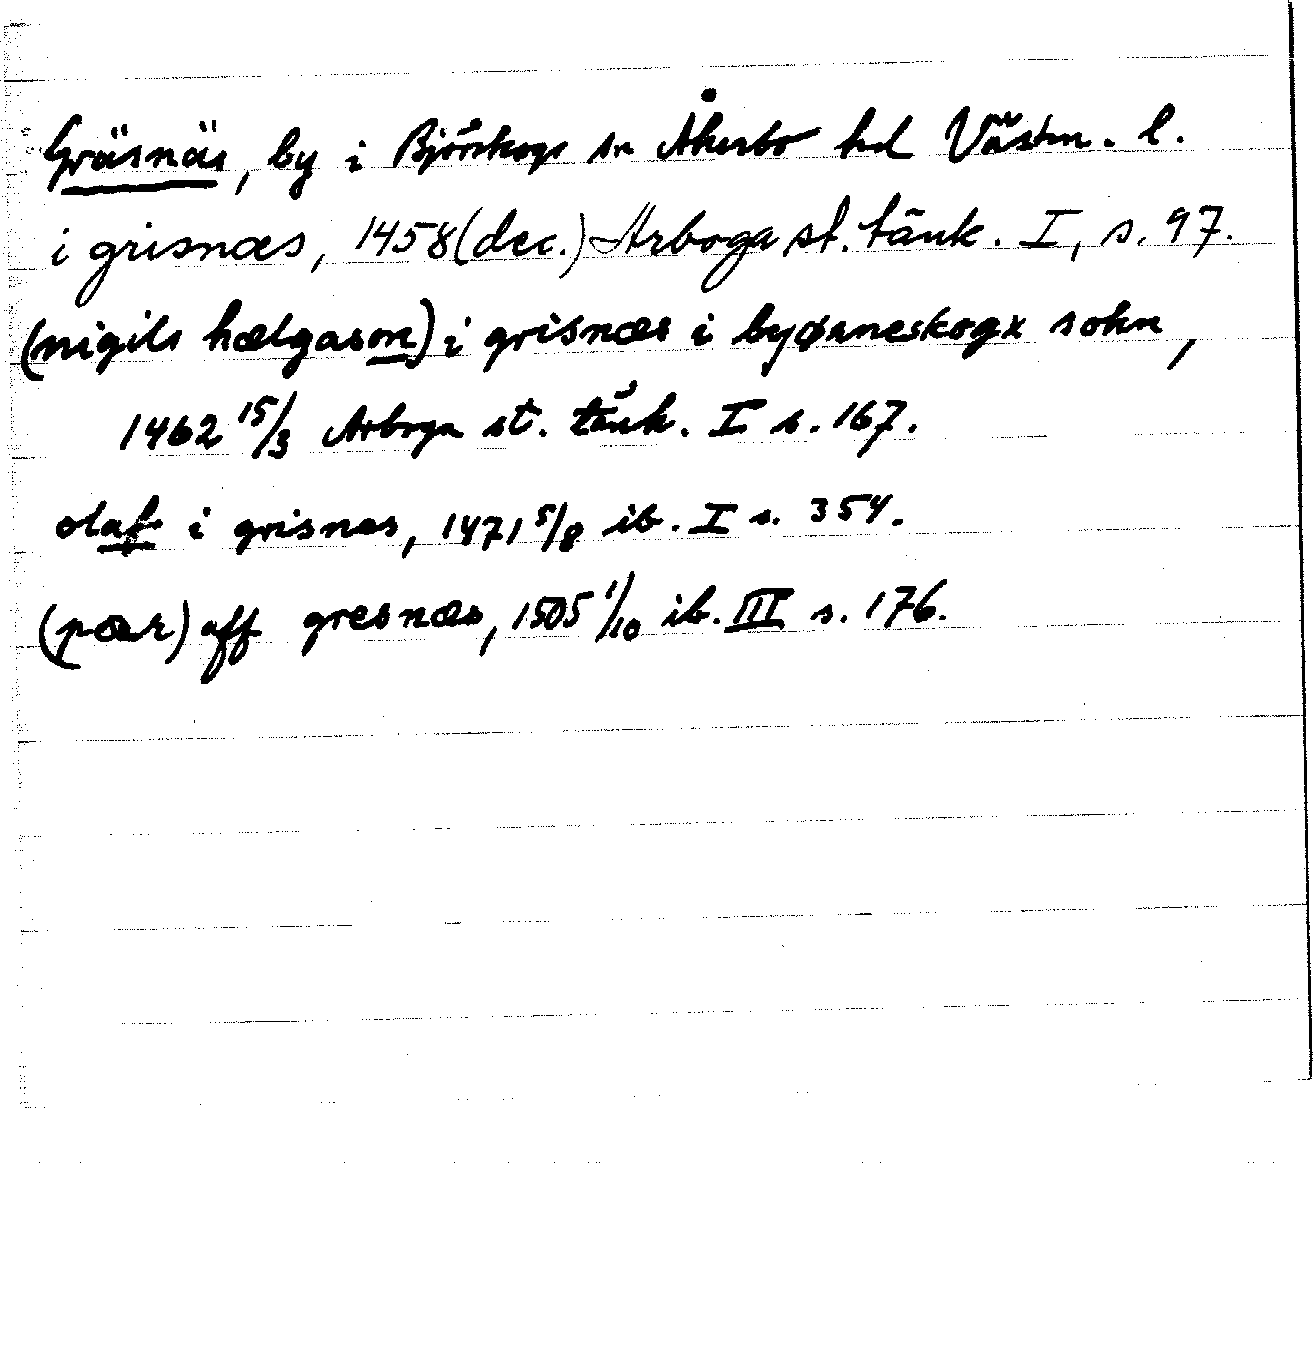 Gräsnäs, by i Björskogs sn Åkerbo hd Västm. l.
i grisnæs, 1458 (dec.) Arboga st. tänk. I, s. 97.
(nigils hælgason) i grisnæs i byørneskogx sokn,
1462 15/3 Arboga st. tänk. I s. 167.
olaf i grisnæs, 1471 5/8 ib. I s. 354.
(pær) aff gresnæs, 1505 1/10 ib. III s. 176.